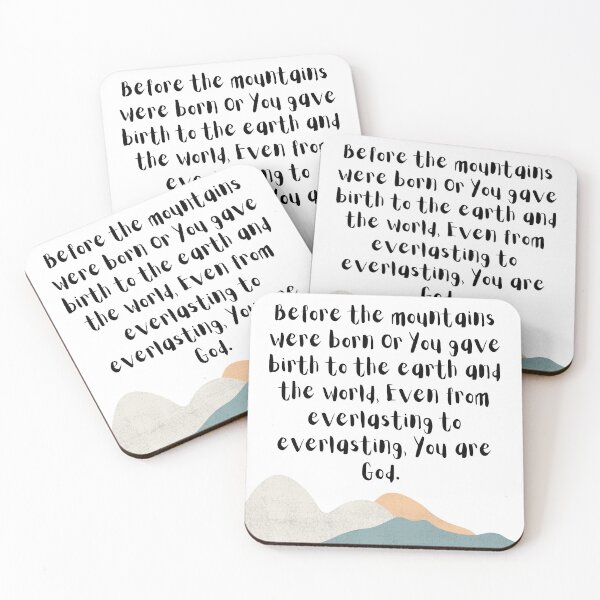 Before the mountains
were born Or You gave
birth to the earth and
the world, Even from
to
You a
Before the mountains
were born Or You gave
birth to the earth and
the world, Even from
everlasting to
everlasting, You are
God.
Before the mountains
were born Or You gave
birth to the earth and
the world, Even from
everlasting to
everlasting, You are
God.
Before the mountains
were born Or You gave
birth to the earth and
the world, Even from
everlasting to
everlasting, You are
God.